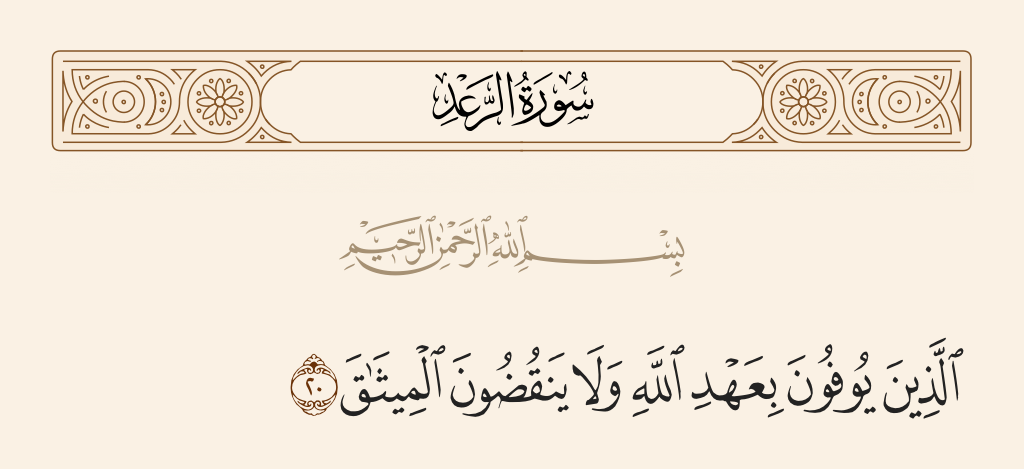 سُورَةُ الرَّعْدِ
بِسْمِ ٱللَّهِ ٱلرَّحْمَٰنِ ٱلرَّحِيمِ
ٱلَّذِينَ يُوفُونَ بِعَهْدِ ٱللَّهِ وَلَا يَنقُضُونَ ٱلْمِيثَٰقَ ٢٠